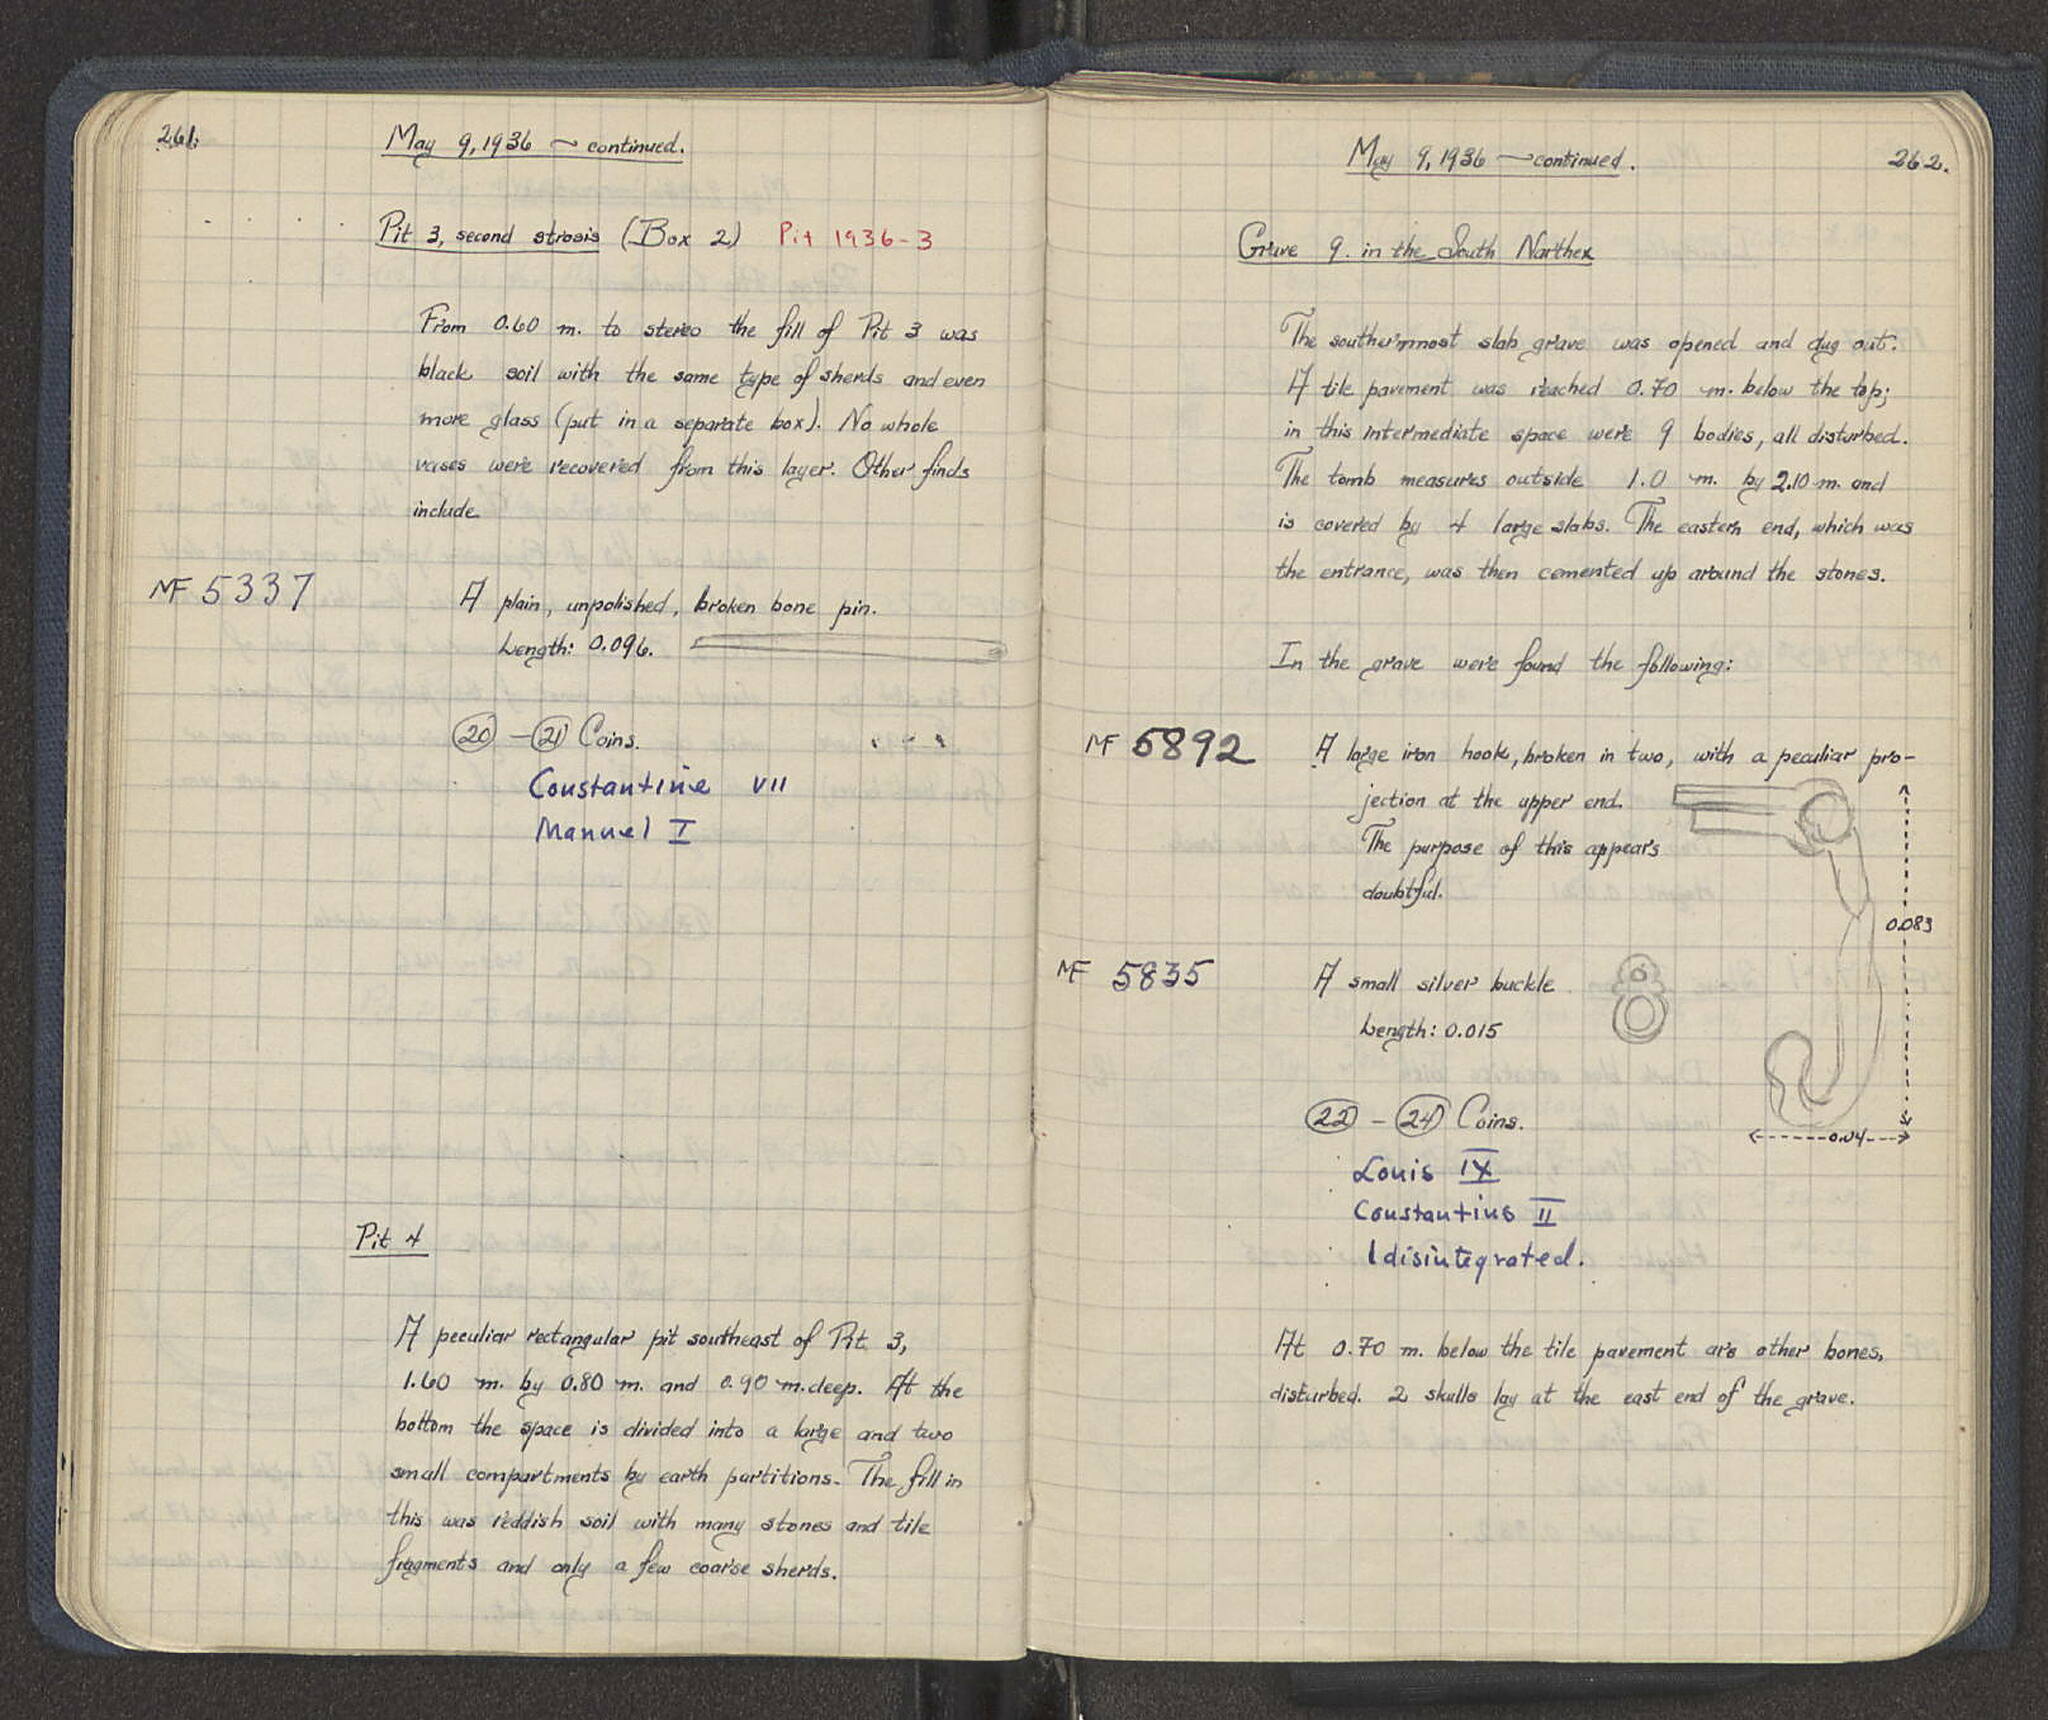 261.
May 9, 1936 ~ continued.
Pit 3, second strosis (Box 2) Pit 1936-3
From 0.60 m. to stereo the fill of Pit 3 was
black soil with the same type of sherds and even
more glass (put in a separate box). No whole
vases were recovered from this layer. Other finds
include
MF 5337 A plain, unpolished, broken bone pin.
Length: 0.096.
20 - 21 Coins.
Constantine VII
Manuel I
Pit 4
A peculiar rectangular pit southeast of Pit 3,
1.60 m. by 0.80 m. and 0.90 m. deep. At the
bottom the space is divided into a large and two
small compartments by earth partitions. The fill in
this was reddish soil with many stones and tile
fragments and only a few coarse sherds.
May 9, 1936 ~ continued. 262.
Grave 9. in the South Narthex
The southernmost slab grave was opened and dug out.
A tile pavement was reached 0.70 m. below the top;
in this intermediate space were 9 bodies, all disturbed.
The tomb measures outside 1.0 m. by 2.10 m. and
is covered by 4 large slabs. The eastern end, which was
the entrance, was then cemented up around the stones.
In the grave were found the following:
MF 5892 A large iron hook, broken in two, with a peculiar pro-
jection at the upper end.
The purpose of this appears
doubtful.
0.083
MF 5835 A small silver buckle
Length: 0.015
22 - 24 Coins.
0.04
Louis IX
Constantius II
1 disintegrated.
At 0.70 m. below the tile pavement are other bones,
disturbed. 2 skulls lay at the east end of the grave.